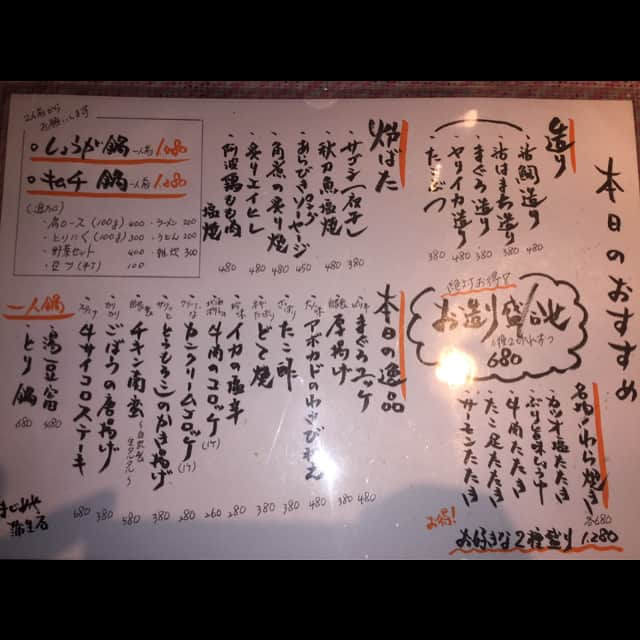 本日のおすすめ
造り
・活鯛造り 480
・活はまち造り 480
・まぐろ造り 380
・ヤリイカ造り 480
・たこぶつ 380
絶対お得!?
お造り盛合せ
680
炉ばた
480
・秋刀魚塩焼 480
・あらびきソーセージ 450
・角煮の炙り焼 480
・炙りエイヒレ 480
・阿波鶏もも肉塩焼 480
2人前から
お願いします
・しょうが鍋 一人前 1,080
・キムチ鍋 一人前 1,280
(追加)
・肩ロース(100g) 600 ・ラーメン 200
・とりにく(100g) 300 ・うどん 200
・野菜セット 400 ・雑炊 300
名物!わら焼き 各680
・カツオ塩たたき
・牛肉たたき
・たこ足たたき
・サーモンたたき
お得!
お好きな2種盛り 1,280
本日の逸品
・まぐろユッケ 480
・厚揚げ 380
・アボカドのわさび和え 480
・たこ酢 380
・どて焼 380
・イカの塩辛 280
・牛肉のコロッケ(1ヶ) 260
・カニクリームコロッケ(1ヶ) 280
・とうもろこしのかき揚げ 380
・チキン南蛮 580
・ごぼうの唐揚げ 380
・牛サイコロステーキ 680
一人鍋
・湯豆腐 580
・とり鍋 680
まじめや
蒲生店